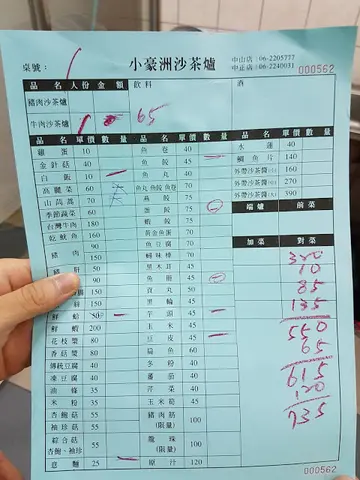 桌號： 小豪洲沙茶爐 中山店：06-2205777
中正店：06-2240031
000562
品名 人份 金額 飲料 酒
豬肉沙茶爐
牛肉沙茶爐 1 65
品名 單價 數量 品名 單價 數量 品名 單價 數量
雞蛋 10 魚卷 40 水蓮 40
金針菇 40 魚餃 45 鯛魚片 140
白飯 10 魚丸 40 外帶沙茶醬(小) 160
高麗菜 60 魚丸魚餃魚卷 70 外帶沙茶醬(中) 270
山茼蒿 70 燕餃 75 外帶沙茶醬(大) 390
季節蔬菜 60 蛋餃 75 端爐 前菜
台灣牛肉 180 蝦餃 75
乾魷魚 160 黃金魚蛋 70 加菜 對菜
豬肉 90 魚豆腐 70 320
150 蟳味棒 70 10
豬肝 50 黑木耳 45 85
90 魚冊 45 135
150 貢丸 50 550
150 黑輪 45 65
鮮蛤 50 芋頭 45 615
鮮蝦 200 玉米 45 120
花枝漿 80 豆皮 45 735
香菇漿 80 扁魚 60
傳統豆腐 40 冬粉 40
凍豆腐 40 蕃茄 40
油條 35 芹菜 40
米粉 35 玉米筍 45
杏鮑菇 55 豬肉筋(限量) 100
袖珍菇 55
綜合菇
杏鮑、袖珍 55 龍珠(限量) 100
意麵 25 原汁 120
000562